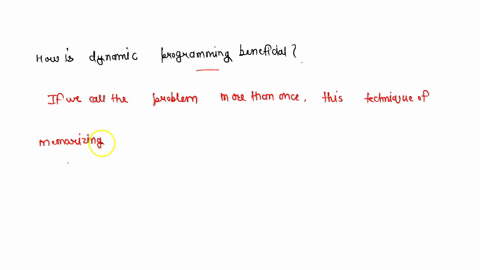 How is dynamic programming beneficial?
If we call the problem more than once, this technique of
memorizing